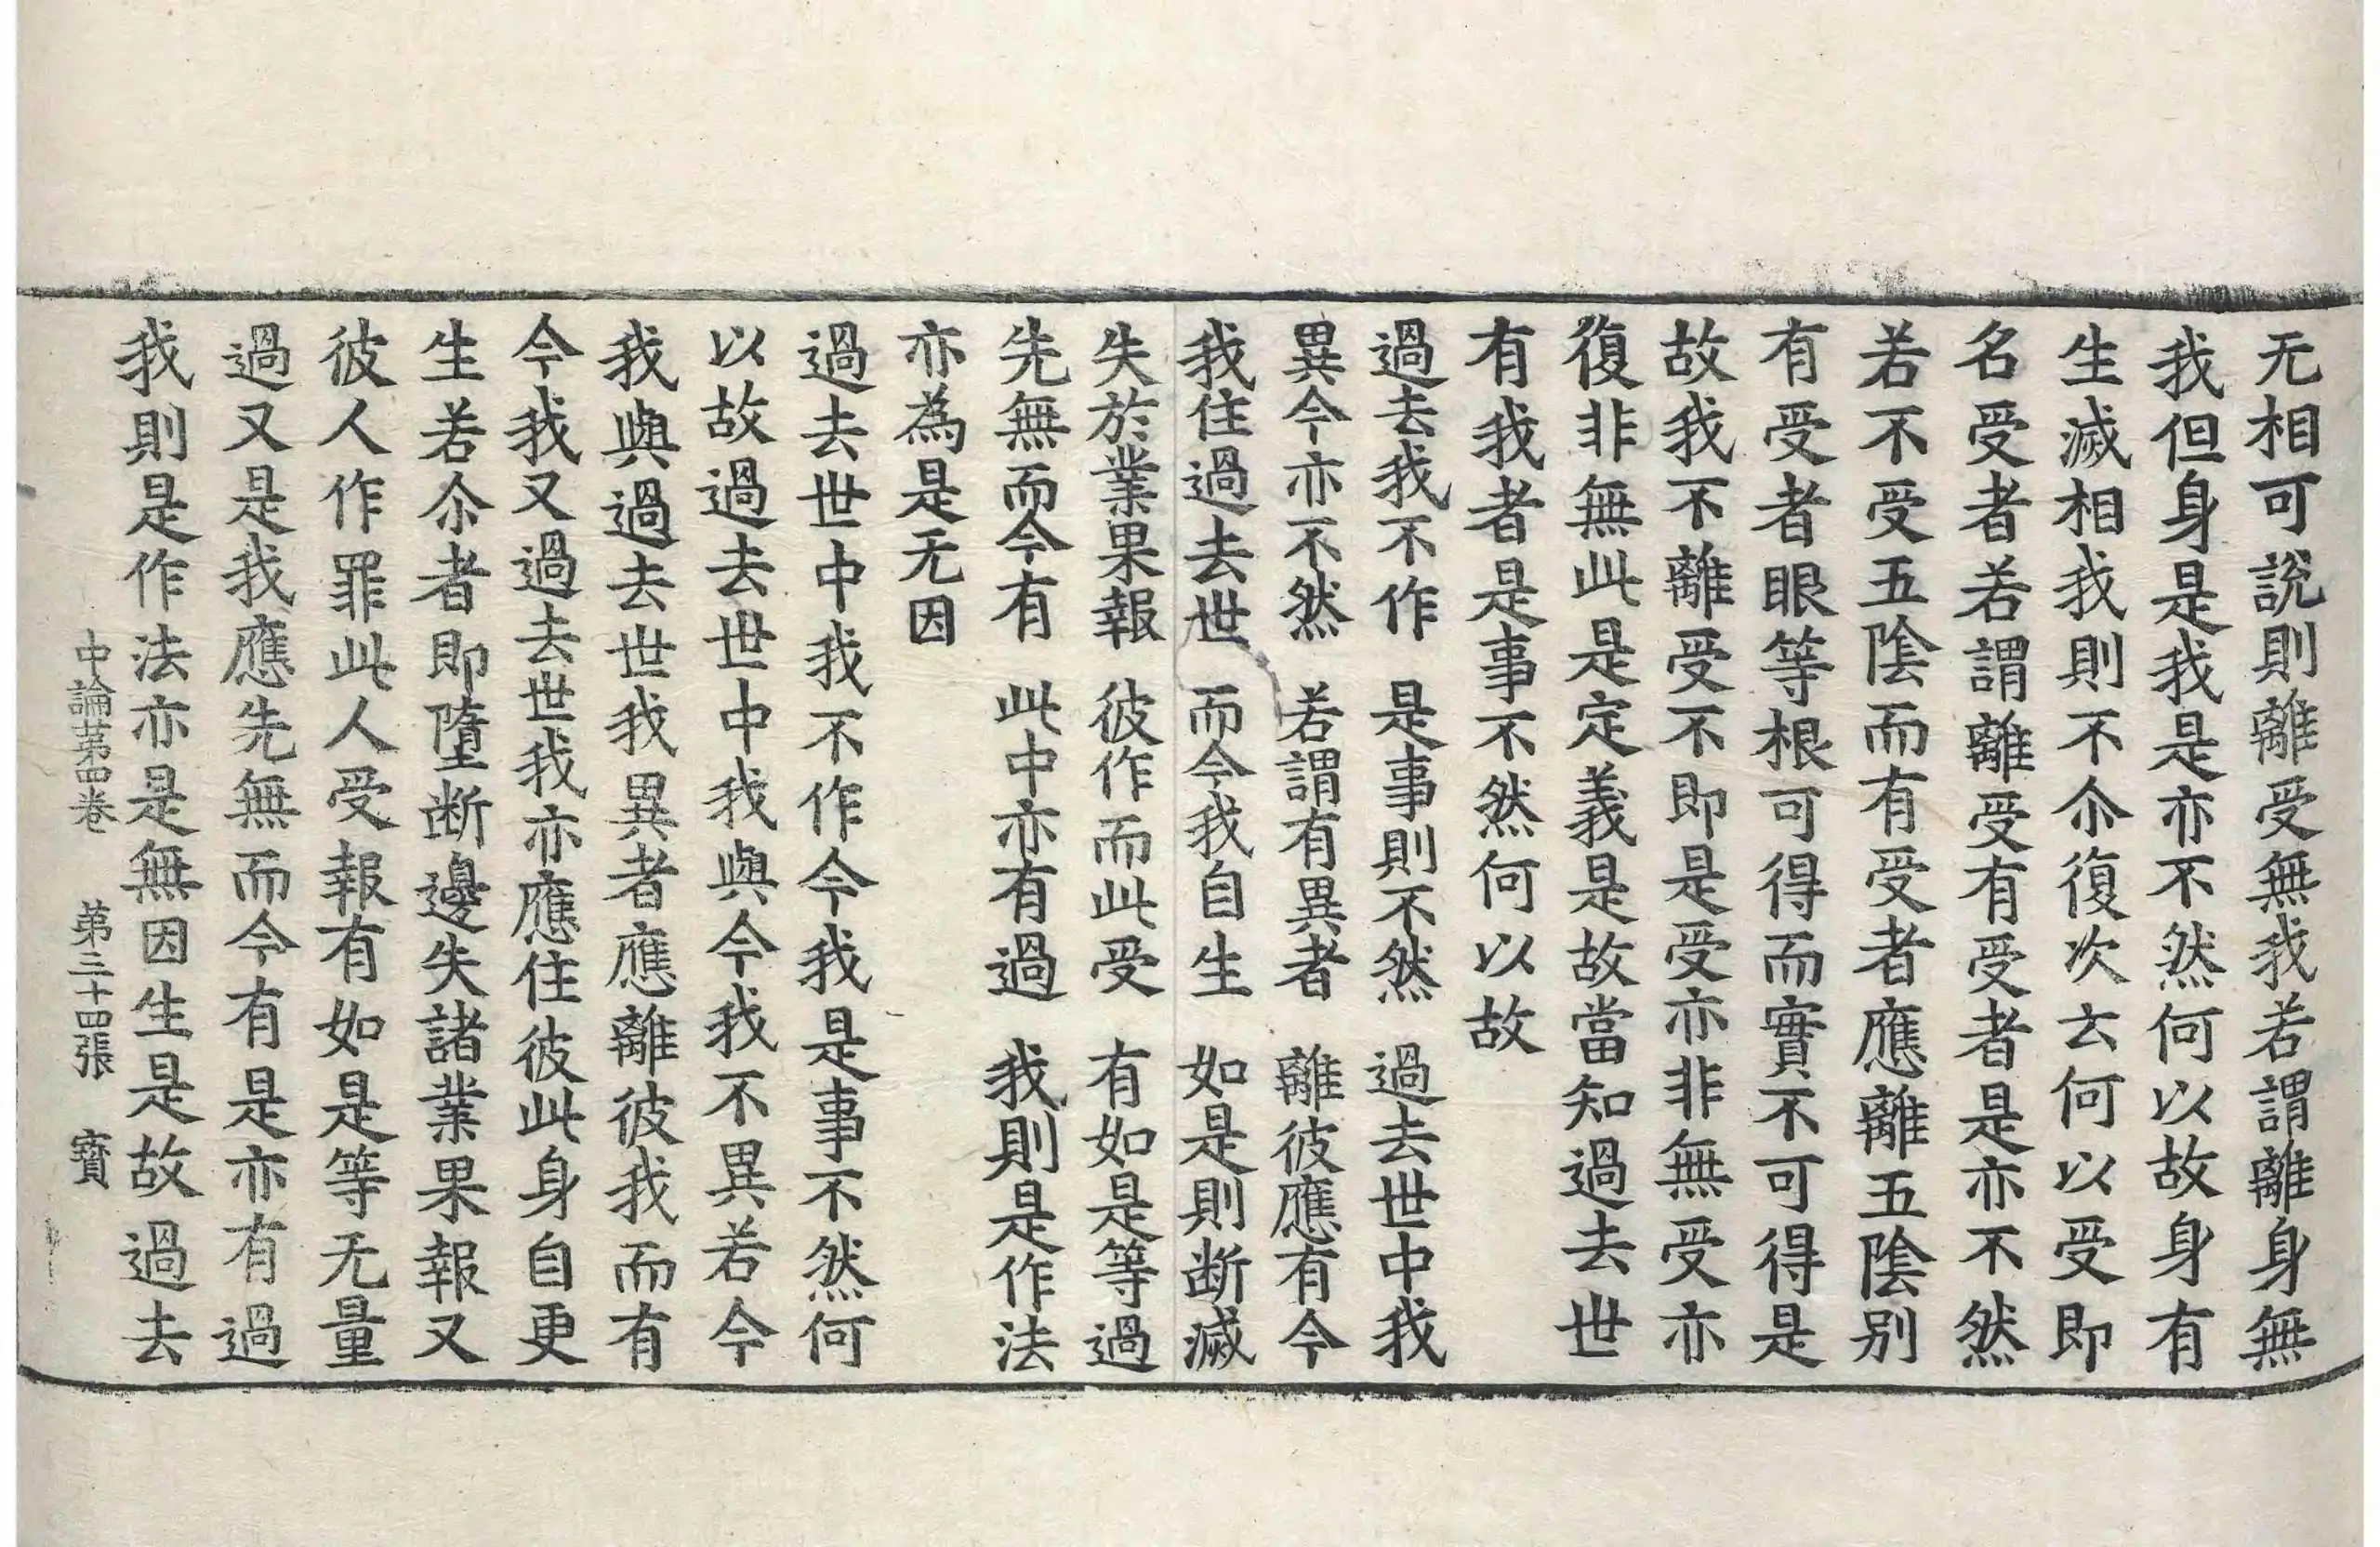 无相可說則離受無我若謂離身無
我但身是我是亦不然何以故身有
生滅相我則不尒復次云何以受即
名受者若謂離受有受者是亦不然
若不受五陰而有受者應離五陰別
有受者眼等根可得而實不可得是
故我不離受不即是受亦非無受亦
復非無此是定義是故當知過去世
有我者是事不然何以故
過去我不作　是事則不然　過去世中我
異今亦不然　若謂有異者　離彼應有今
我住過去世　而今我自生　如是則断滅
失於業果報　彼作而此受　有如是等過
先無而今有　此中亦有過　我則是作法
亦為是无因
過去世中我不作今我是事不然何
以故過去世中我與今我不異若今
我與過去世我異者應離彼我而有
今我又過去世我亦應住彼此身自更
生若尒者即墮断邊失諸業果報又
彼人作罪此人受報有如是等无量
過又是我應先無而今有是亦有過
我則是作法亦是無因生是故過去
中論第四卷　第三十四張　寳